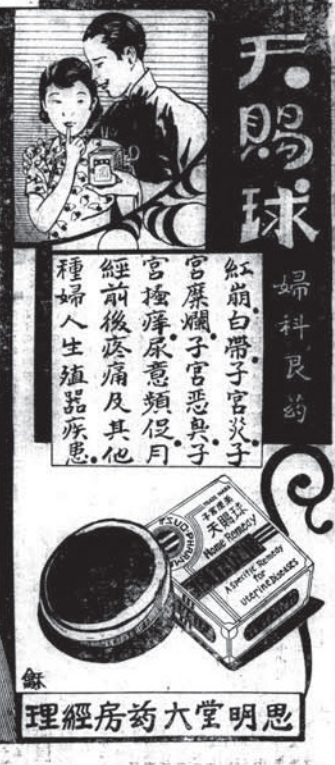 天賜球
婦科良葯
紅崩白帶子宮炎子
宮糜爛子宮恶臭子
宮搔痒尿意頻促月
經前後疼痛及其他
種婦人生殖器疾患
天賜球
Home Remedy
A specific Remedy
for
Uterine Diseases
思明堂大葯房經理